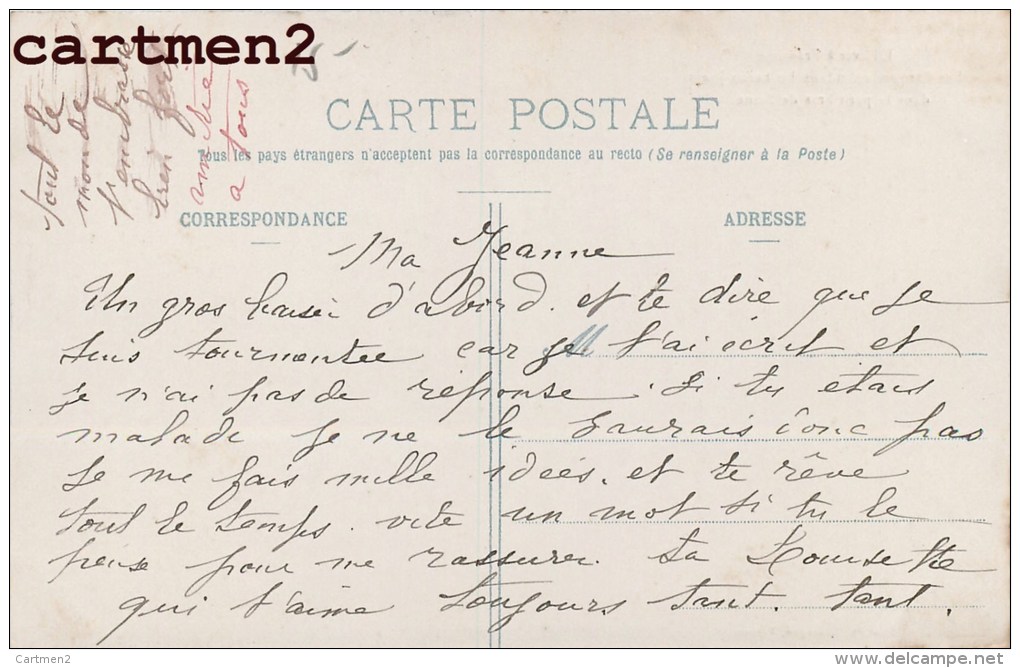 cartmen2
tout le
monde
t'embrasse
bien fort
a tous
CARTE POSTALE
Tous les pays étrangers n'acceptent pas la correspondance au recto (Se renseigner à la Poste)
CORRESPONDANCE
ADRESSE
Ma Jeanne
Un gros baiser d'abord. et te dire que je
suis tourmentée car je t'ai écrit et
je n'ai pas de réponse. Si tu étais
malade je ne le saurais donc pas
Je me fais mille idées. et te rêve
tout le temps. vite un mot si tu le
peux pour me rassurer. ta Lousette
qui t'aime toujours tant. tant.
Cartmen2
www.delcampe.net